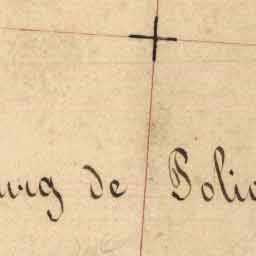 urg de Polic